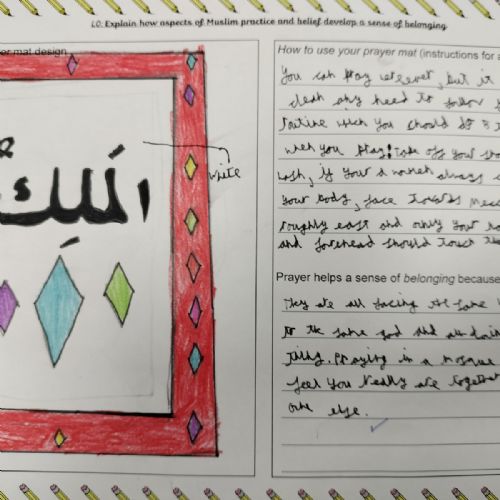 LO: Explain how aspects of Muslim practice and belief develop a sense of belonging
er mat design
الملك
white
How to use your prayer mat (instructions for a
You can pray wherever, but it
clean any need to follow
routine which you should do 5
when you pray! Take off your
wash, if your a always
your body, face towards Mecca
roughly east and only your
and forehead should touch the
Prayer helps a sense of belonging because
They are all facing the same
to the same god and all doing
Praying in a mosque
feel you really are together
one else.